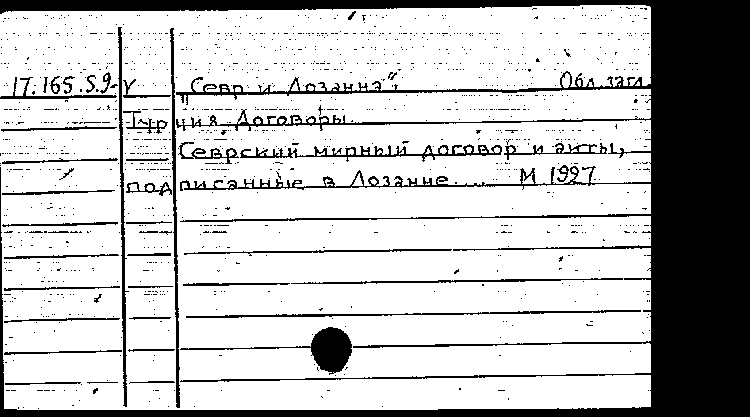 17.165.5.9- У „Севр и Лозанна“; Обл. загл.
Турция. Договоры
Севрский мирный договор и акты,
подписанные в Лозанне.... М 1927